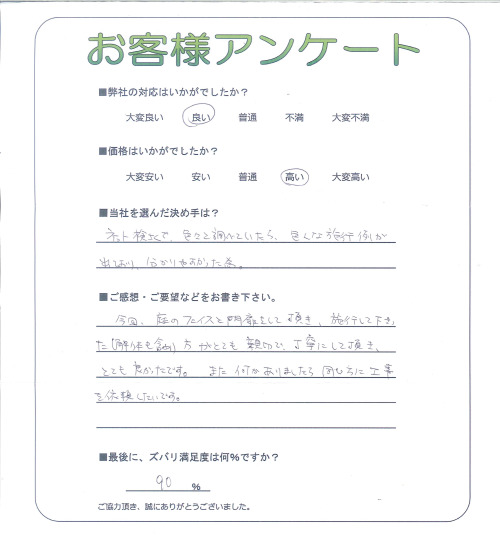 お客様アンケート
■弊社の対応はいかがでしたか？
大変良い 良い 普通 不満 大変不満
■価格はいかがでしたか？
大変安い 安い 普通 高い 大変高い
■当社を選んだ決め手は？
ネット検索で、色々と調べていたら、色々な施行例が
出ており、分かりやすかった為。
■ご感想・ご要望などをお書き下さい。
今回、庭のフェイスと門扉をして頂き、施行して下さっ
た(解体も含め)方がとても親切で、丁寧にして頂き、
とても良かったです。また何かありましたら同じように工事
を依頼したいです。
■最後に、ズバリ満足度は何%ですか？
90 %
ご協力頂き、誠にありがとうございました。